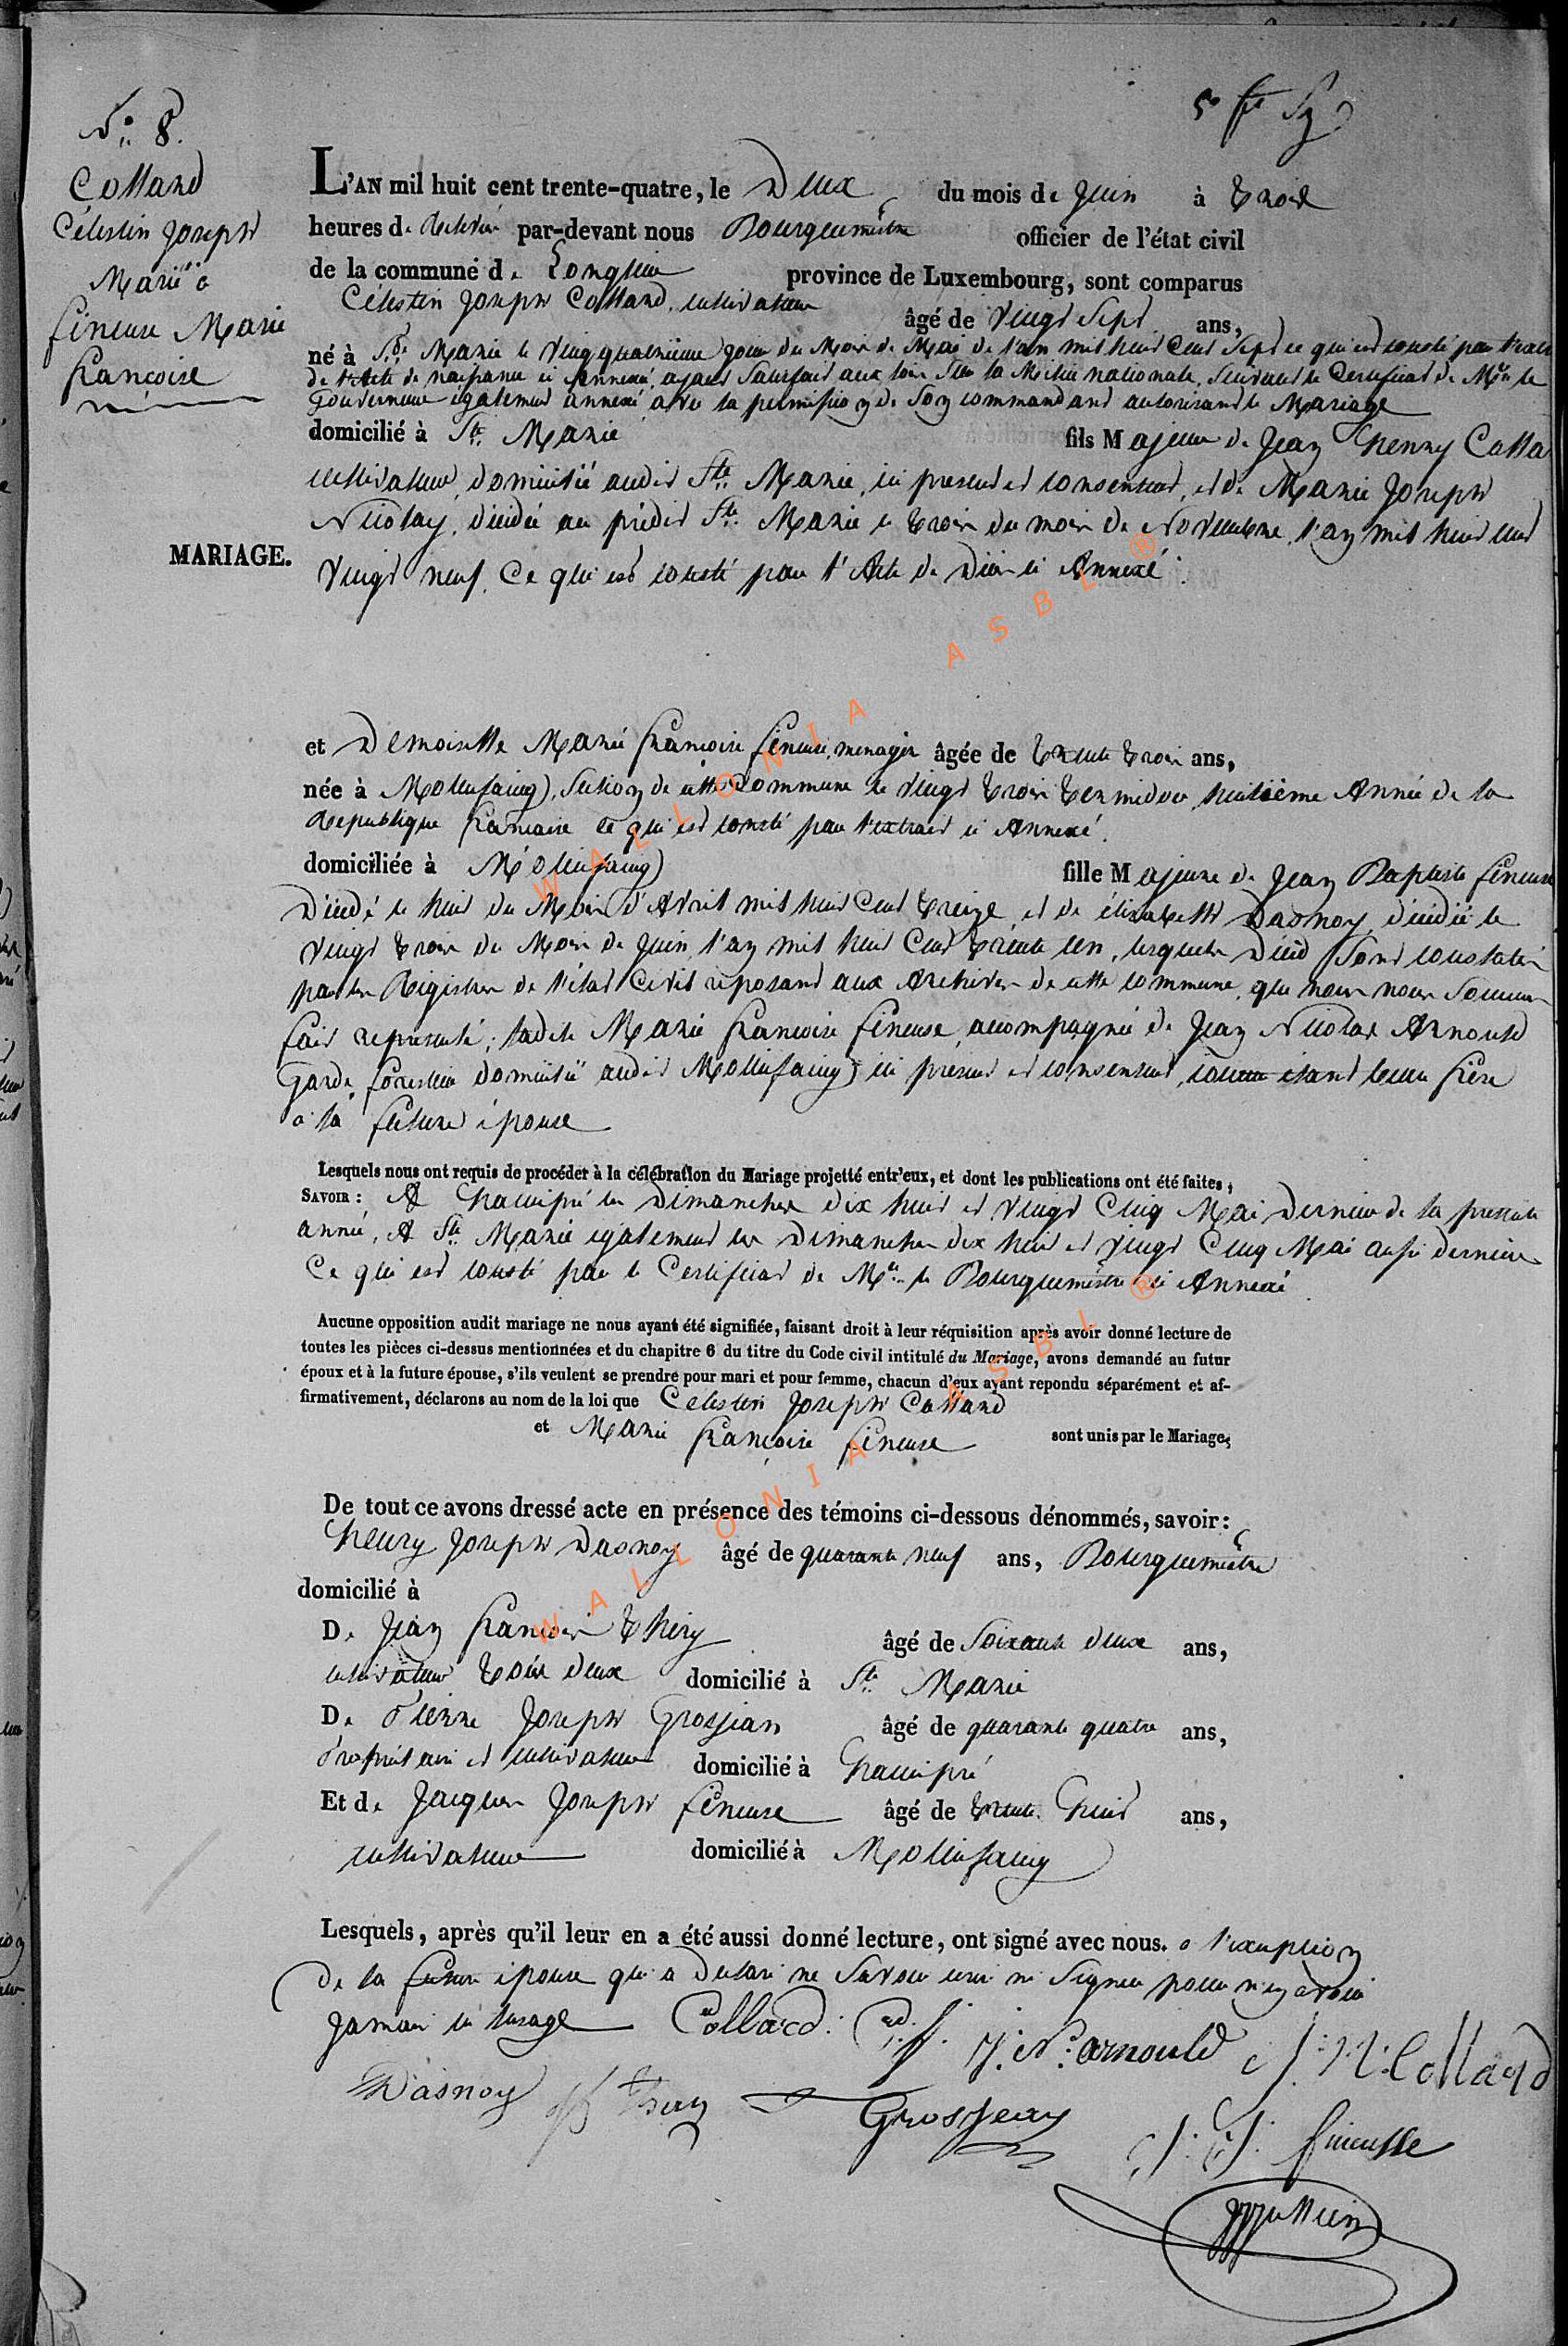 N° 8.
Collard
Célestin Joseph
Marié à
fineuse Marie
françoise
MARIAGE.
L'AN mil huit cent trente-quatre, le Deux du mois de Juin à trois
heures de relevée par-devant nous Bourguemestre officier de l'état civil
de la commune de Longlier province de Luxembourg, sont comparus
Célestin Joseph Collard, cultivateur âgé de vingt Sept ans,
né à Ste Marie le vingt quatrième jour du Mois de Mai de l'an mil huit Cent Sept ce qui est consté par l'extrait
de l'Acte de naissance ci Annexé, ayant Satisfait aux loix Sur la Milice nationale, Suivant le Certificat de Mr le
Gouverneur également annexé avec la permission de Son commandant autorisant le Mariage
domicilié à Ste Marie fils Majeur de Jean henry Colla
cultivateur, domicilié audit Ste Marie, ici present et consentant, et de Marie Joseph
Nicolay, décédée au prédit Ste Marie le trois du mois de Novembre, l'an mil huit cent
vingt neuf, Ce qui est consté par l'Acte de Décès ci Annexé.
et Demoiselle Marie françoise fineuse, menagère âgée de trente trois ans,
née à Mollinfaing, Section de cette Commune le vingt trois termidor, huitième Année de la
Republique francaise ce qui est consté par l'extrait ci Annexé.
domiciliée à Mollinfaing fille Majeure de Jean Baptiste fineuse
Décédé le huit du Mois d'Avril mil huit Cent treize, et de élizabeth Dasnoy, décédée le
vingt trois du Mois de Juin, l'an mil huit Cent trente un, lesquels Décès Sont constatés
par les Régistres de l'état Civil reposant aux Archives de cette commune, que nous nous Sommes
fait representé; ladite Marie francoise fineuse, accompagnée de Jean Nicolas Arnould
Garde forestier domicilié audit Mollinfaing, ici présent et consentant, comme étant beau frère
à la future épouse
Lesquels nous ont requis de procéder à la célébration du Mariage projetté entr'eux, et dont les publications ont été faites,
SAVOIR : A hamipré les Dimanches dix huit et vingt Cinq Mai Dernier de la presente
année, A Ste Marie également les Dimanches dix huit et vingt Cinq Mai aussi dernier
Ce qui est consté par le Certificat de Mr le Bourguemestre ci Annexé
Aucune opposition audit mariage ne nous ayant été signifiée, faisant droit à leur réquisition après avoir donné lecture de
toutes les pièces ci-dessus mentionnées et du chapitre 6 du titre du Code civil intitulé du Mariage, avons demandé au futur
époux et à la future épouse, s'ils veulent se prendre pour mari et pour femme, chacun d'eux ayant repondu séparément et af-
firmativement, déclarons au nom de la loi que Celestin Joseph Collard
et Marie françoise fineuse sont unis par le Mariage,
De tout ce avons dressé acte en présence des témoins ci-dessous dénommés, savoir :
henry Joseph Dasnoy âgé de quarante neuf ans, Bourguemestre
domicilié à
De Jean francois thiry âgé de Soixante deux ans,
cultivateur tous deux domicilié à Ste Marie
De Pierre Joseph Grosjean âgé de quarante quatre ans,
Propriétaire et cultivateur domicilié à hamipré
Et de Jacques Joseph fineuse âgé de trente huit ans,
cultivateur domicilié à Mollinfaing
Lesquels, après qu'il leur en a été aussi donné lecture, ont signé avec nous. à l'exception
De la future épouse qui a Déclaré ne Savoir écrire ni Signer pour n'en avoir
Jamais eu l'usage Collard: J: N: arnould J: h: Collard
Dasnoy Grosjean J: J: fineusse
WALLONIA ASBL ®
WALLONIA ASBL ®